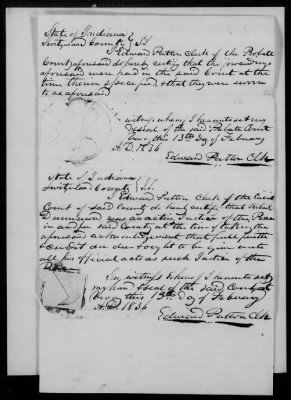 State of Indiana
Switzerland County } Sct
I Edward Patton Clerk of the Probate
Court aforesaid do hereby certify that the foregoing
aforesaid were paid in the said Court at the
time therein specified & that they were sworn
to as aforesaid
witness whereof I hereunto set my
of the said Probate Court
this 13th day of February
A.D. 1836
Edward Patton Clk
State of Indiana
Switzerland County } Sct.
I Edward Patton Clerk of the Circuit
Court of said County do hereby certify that
was an acting Justice of the Peace
in and for said County at the time of taking the
aforesaid acknowledgement that full faith
& credit are due & ought to be given unto
all his official acts as such Justice of the
Peace
In witness whereof I hereunto set
my hand & seal of the said Court at
this 13th day of February
A.D. 1836
Edward Patton Clk